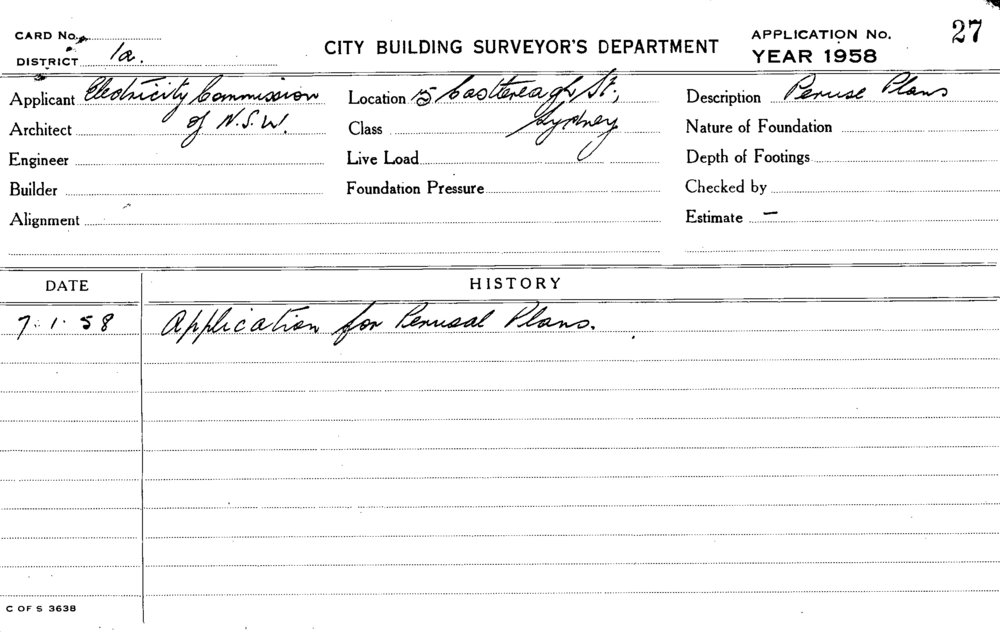 CARD No.
DISTRICT 1a.
CITY BUILDING SURVEYOR'S DEPARTMENT
APPLICATION No. 27
YEAR 1958
Applicant Electricity Commission
of N.S.W.
Location 15 Castlereagh St.,
Sydney
Description Peruse Plans
Architect
Class
Nature of Foundation
Engineer
Live Load
Depth of Footings
Builder
Foundation Pressure
Checked by
Alignment
Estimate —
DATE HISTORY
7.1.58 Application for Perusal Plans.
C OF S 3638